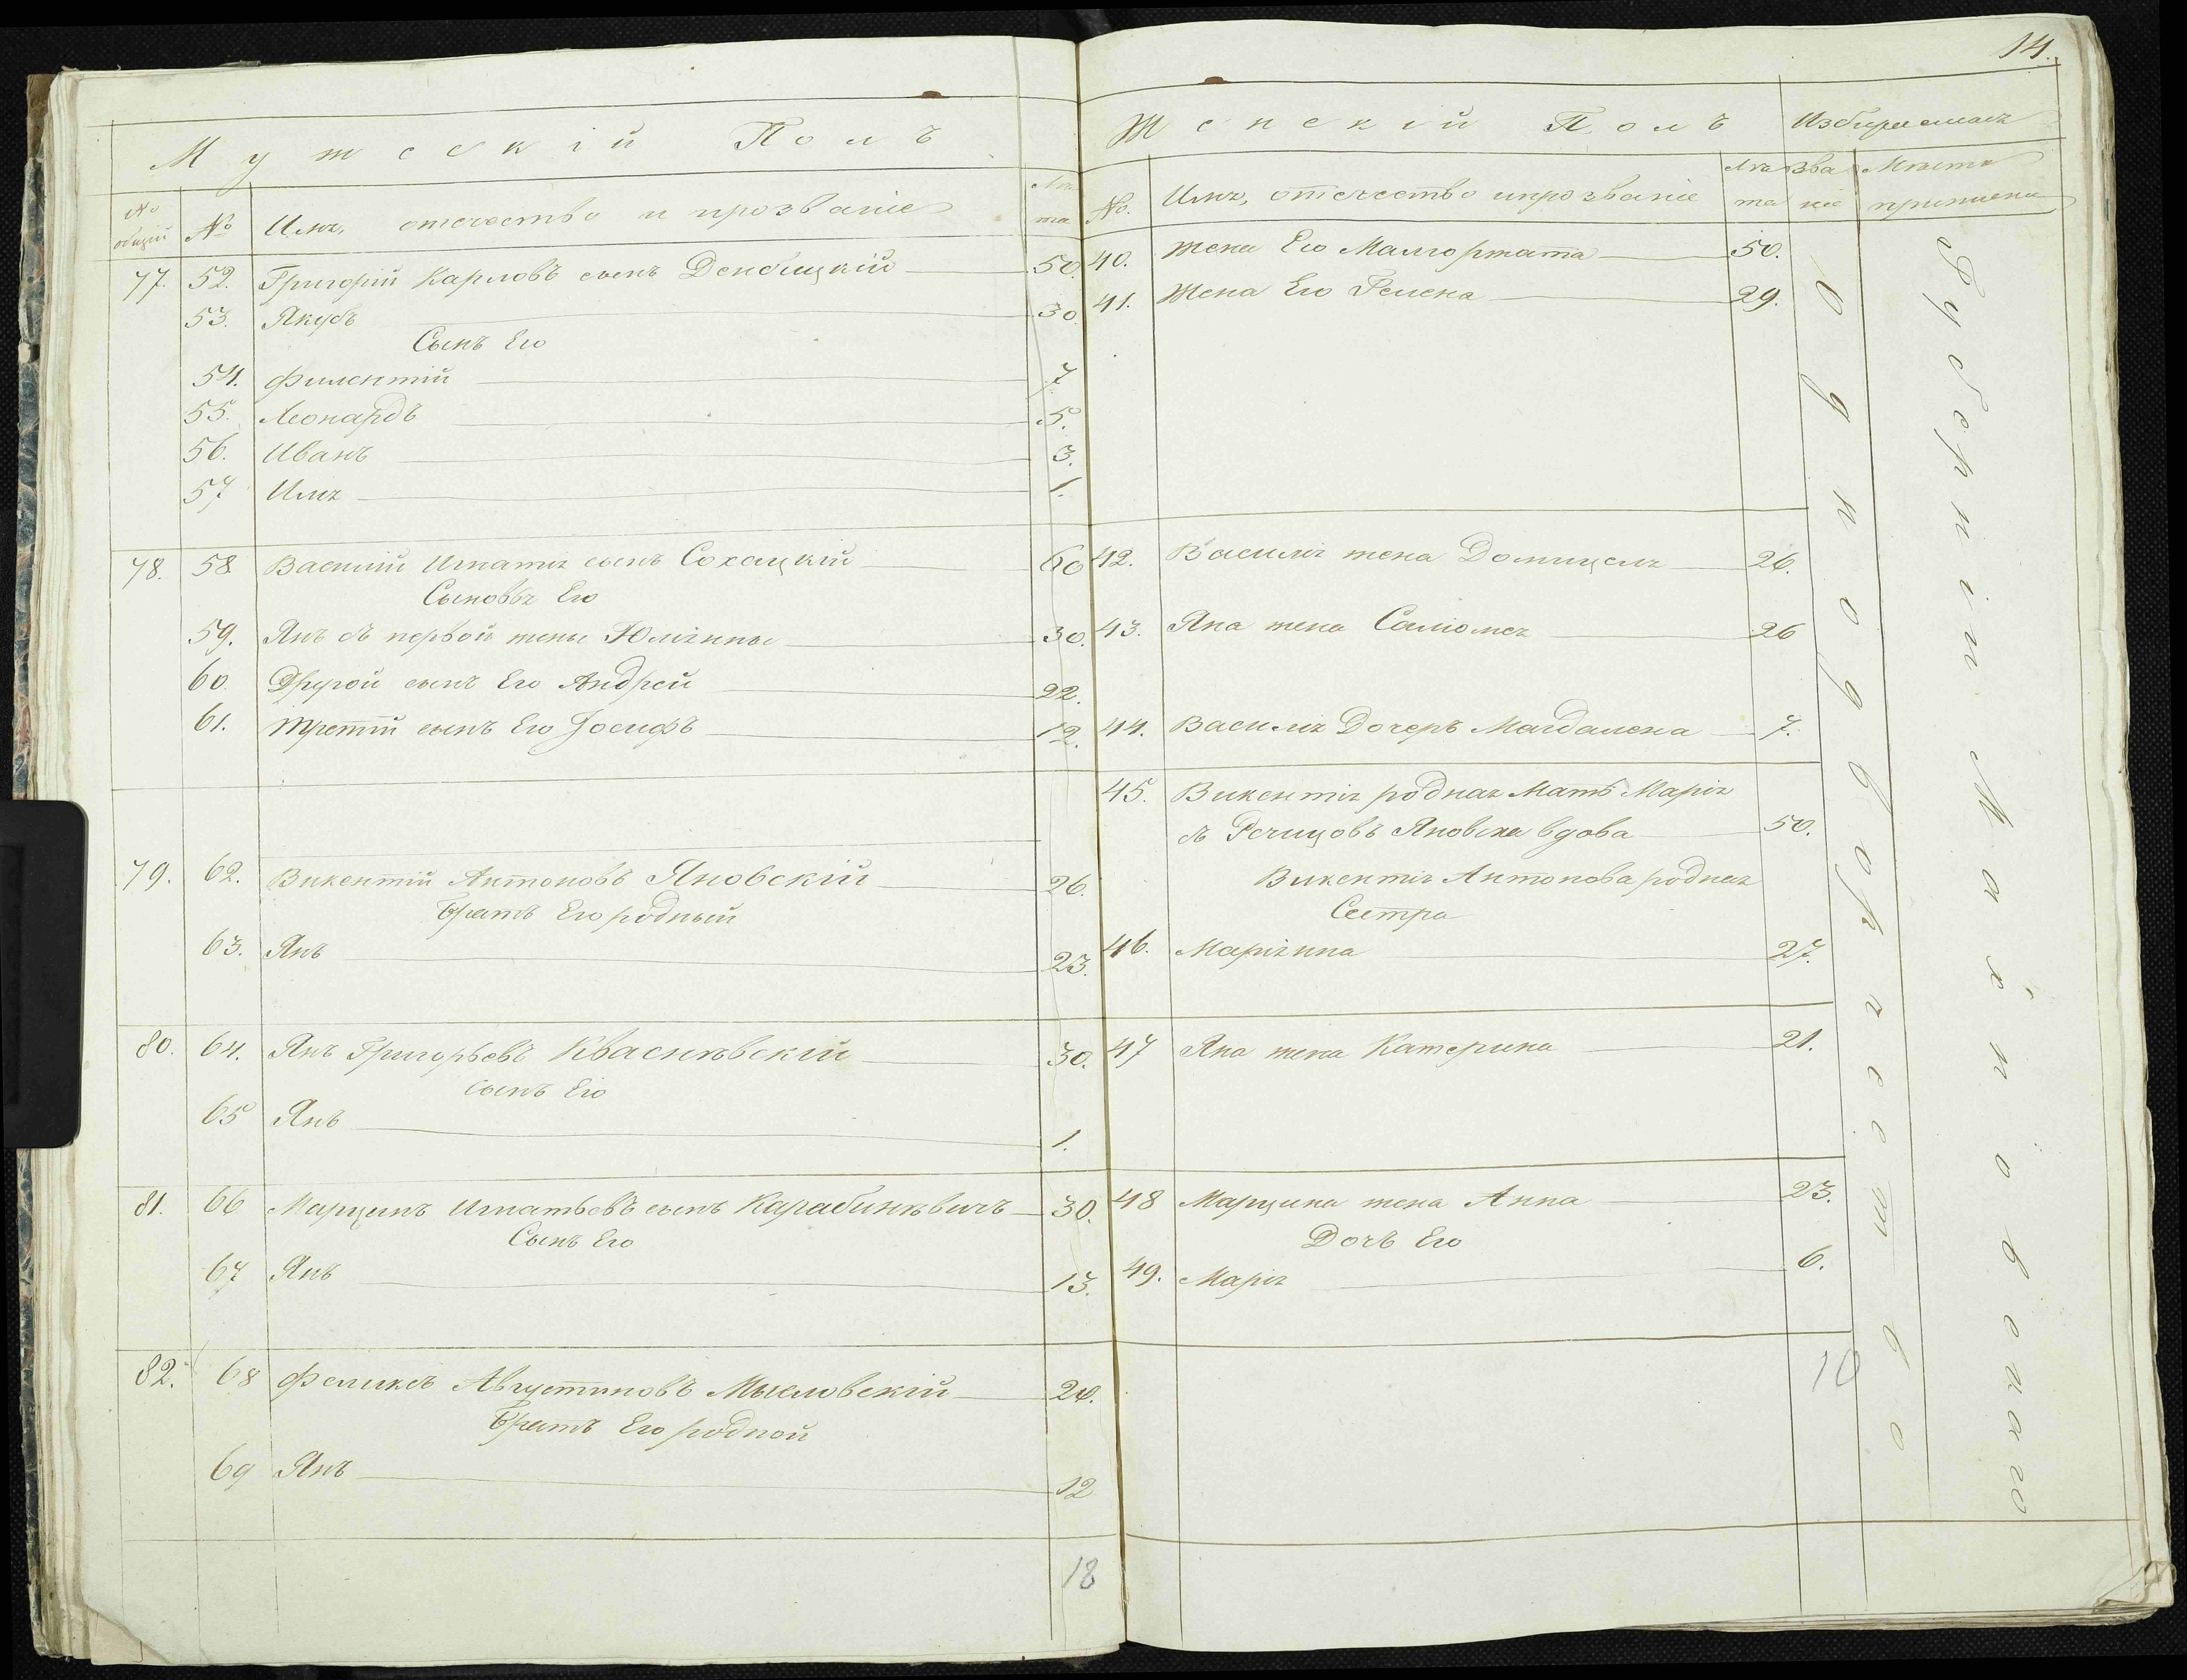 14.
Мужескій Полъ
№ общій
№
Имя, отечество и прозваніе
Лѣта
77. 52. Григорій Карловъ сынъ Денбицкій 50.
53. Якубъ 30.
Сынъ Его
54. Филентій 7
55. Леонардъ 5.
56. Иванъ 3.
57 Илія 1.
78. 58 Василій Игнатія сынъ Сохацкій 60
Сыновья Его
59. Янъ съ первой жены Юліянны 30.
60. Другой сынъ Его Андрей 22.
61. Третій сынъ Его Іосифъ 12.
79. 62. Викентій Антоновъ Яновскій 26.
Братъ Его родный
63. Янъ 23.
80. 64. Янъ Григорьевъ Квасневскій 30.
сынъ Его
65 Янъ 1.
81. 66 Марцинъ Игнатьевъ сынъ Карабинѣвичъ 30.
Сынъ Его
67 Янъ 13.
82. 68 Феликсъ Августиновъ Мысловскій 20.
Братъ Его родной
69 Янъ 12
18
Женскій Полъ
№.
Имя, отечество и прозваніе
Лѣта
Званіе
Мѣста
40. Жена Его Малгоржата 50.
41. Жена Его Гелена 29.
42. Василія жена Домицеля 26.
43. Яна жена Саліомея 26
44. Василія Дочеръ Магдалена 7.
45. Викентія родная Мать Марія
съ Речицовъ Яновска вдова 50.
Викентія Антонова родная
Сестра
46. Маріянна 27.
47 Яна жена Катерина 21.
48 Марцина жена Анна 23.
Дочь Его
49. Марія 6.
10
Однодворческаго
Губерніи